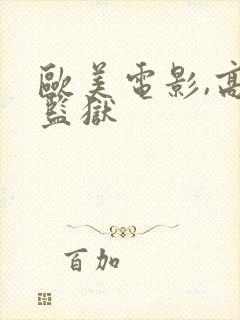 歐美電影,高
監獄
百加